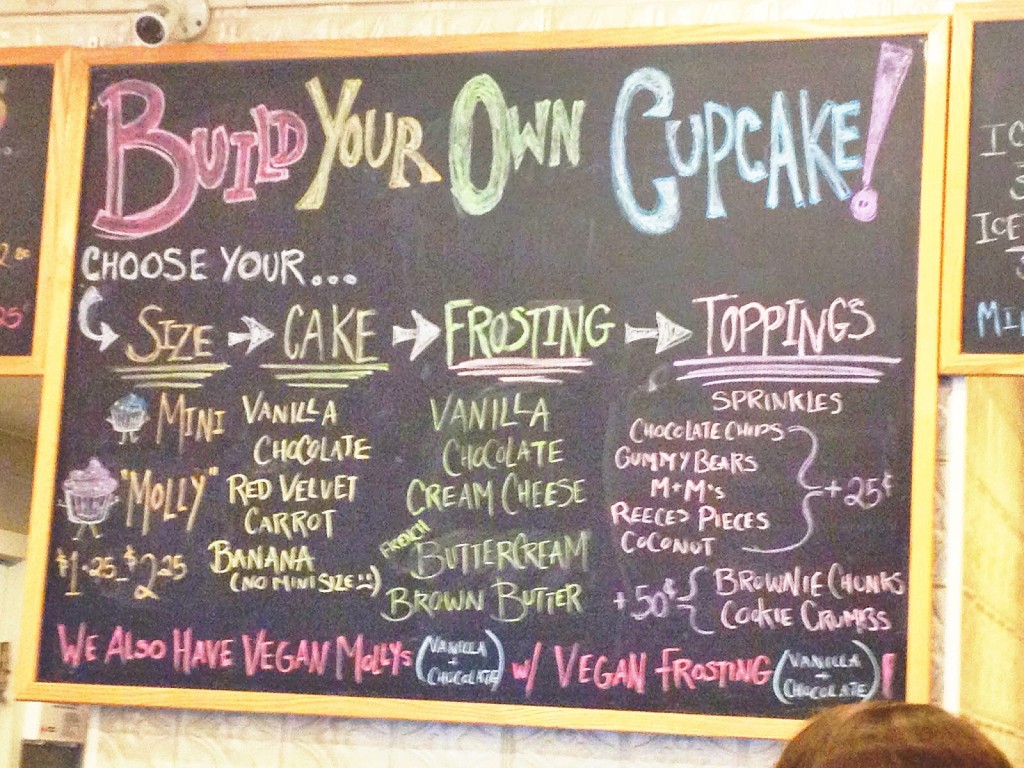 BUILD YOUR OWN CUPCAKE!
CHOOSE YOUR...
SIZE → CAKE → FROSTING → TOPPINGS
MINI
"MOLLY"
$1.25-$2.25
VANILLA
CHOCOLATE
RED VELVET
CARROT
BANANA
(NO MINI SIZE :))
VANILLA
CHOCOLATE
CREAM CHEESE
FRENCH
BUTTERCREAM
BROWN BUTTER
SPRINKLES
CHOCOLATE CHIPS
GUMMY BEARS
M+M's
REECES PIECES
COCONUT
+25¢
+50¢
BROWNIE CHUNKS
COOKIE CRUMBS
WE ALSO HAVE VEGAN MOLLYS (VANILLA + CHOCOLATE) w/ VEGAN FROSTING (VANILLA + CHOCOLATE)!